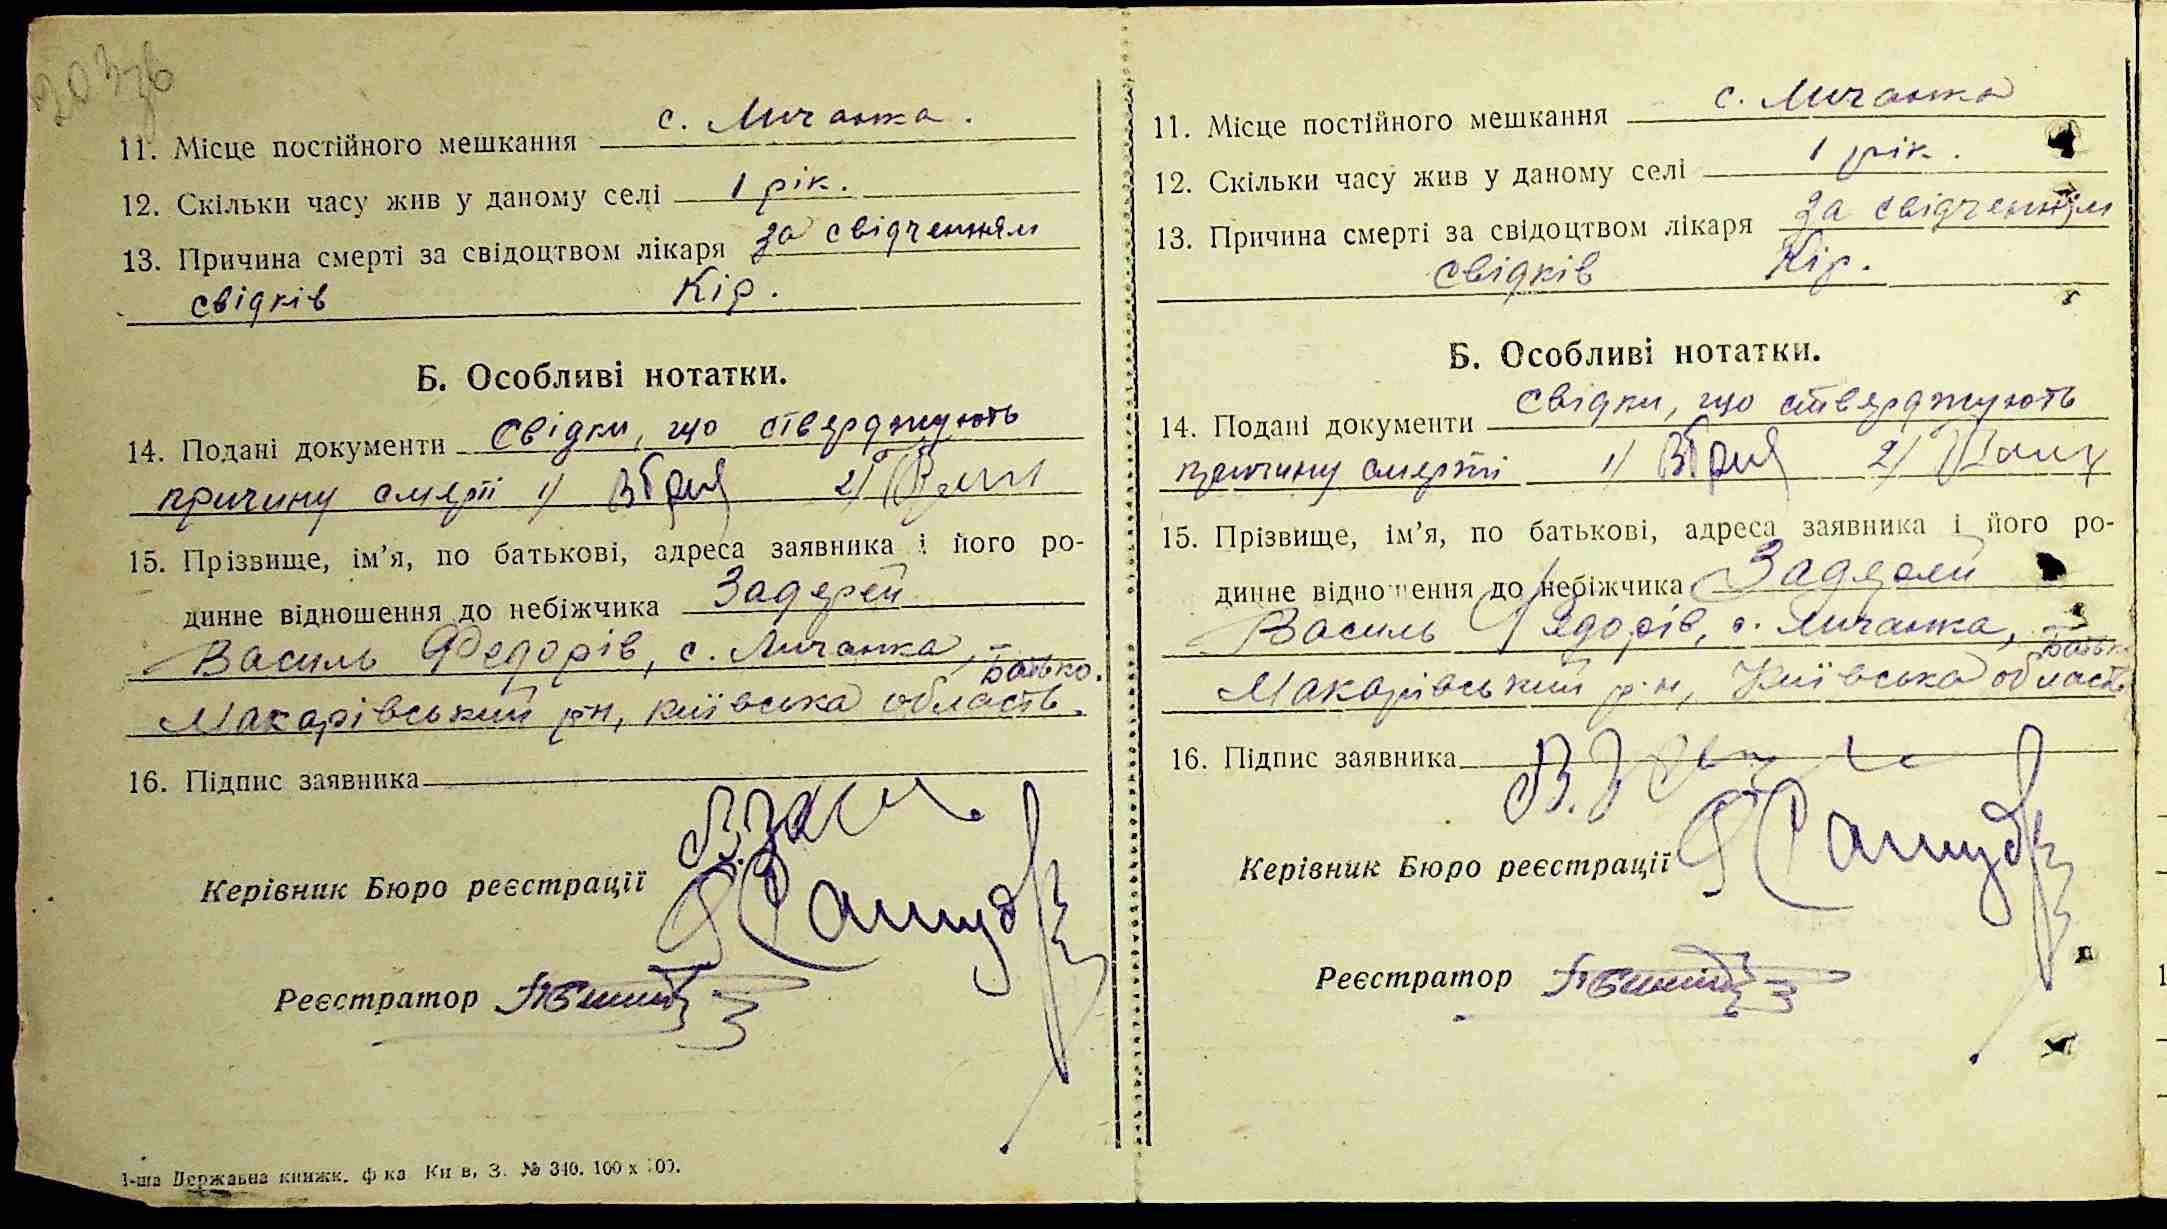 11. Місце постійного мешкання с. Личанка.
12. Скільки часу жив у даному селі 1 рік.
13. Причина смерті за свідоцтвом лікаря за свідченням
свідків Кір.
Б. Особливі нотатки.
14. Подані документи Свідки, що ствержують
причину смерті 1) 2)
15. Прізвище, ім'я, по батькові, адреса заявника і його ро-
динне відношення до небіжчика Задерей
Василь Федорів, с. Личанка, - батько.
Макарівський р-н, київська область.
16. Підпис заявника
Керівник Бюро реєстрації
Реєстратор
1-ша Державна книжк. ф-ка Київ, З. № 340. 100 х 100.
11. Місце постійного мешкання с. Личанка
12. Скільки часу жив у даному селі 1 рік.
13. Причина смерті за свідоцтвом лікаря за свідченням
свідків Кір.
Б. Особливі нотатки.
14. Подані документи Свідки, що ствержують
причину смерті 1) 2)
15. Прізвище, ім'я, по батькові, адреса заявника і його ро-
динне відношення до небіжчика Задерей
Василь Федорів, с. Личанка, - батько
Макарівський р-н, Київська область
16. Підпис заявника
Керівник Бюро реєстрації
Реєстратор